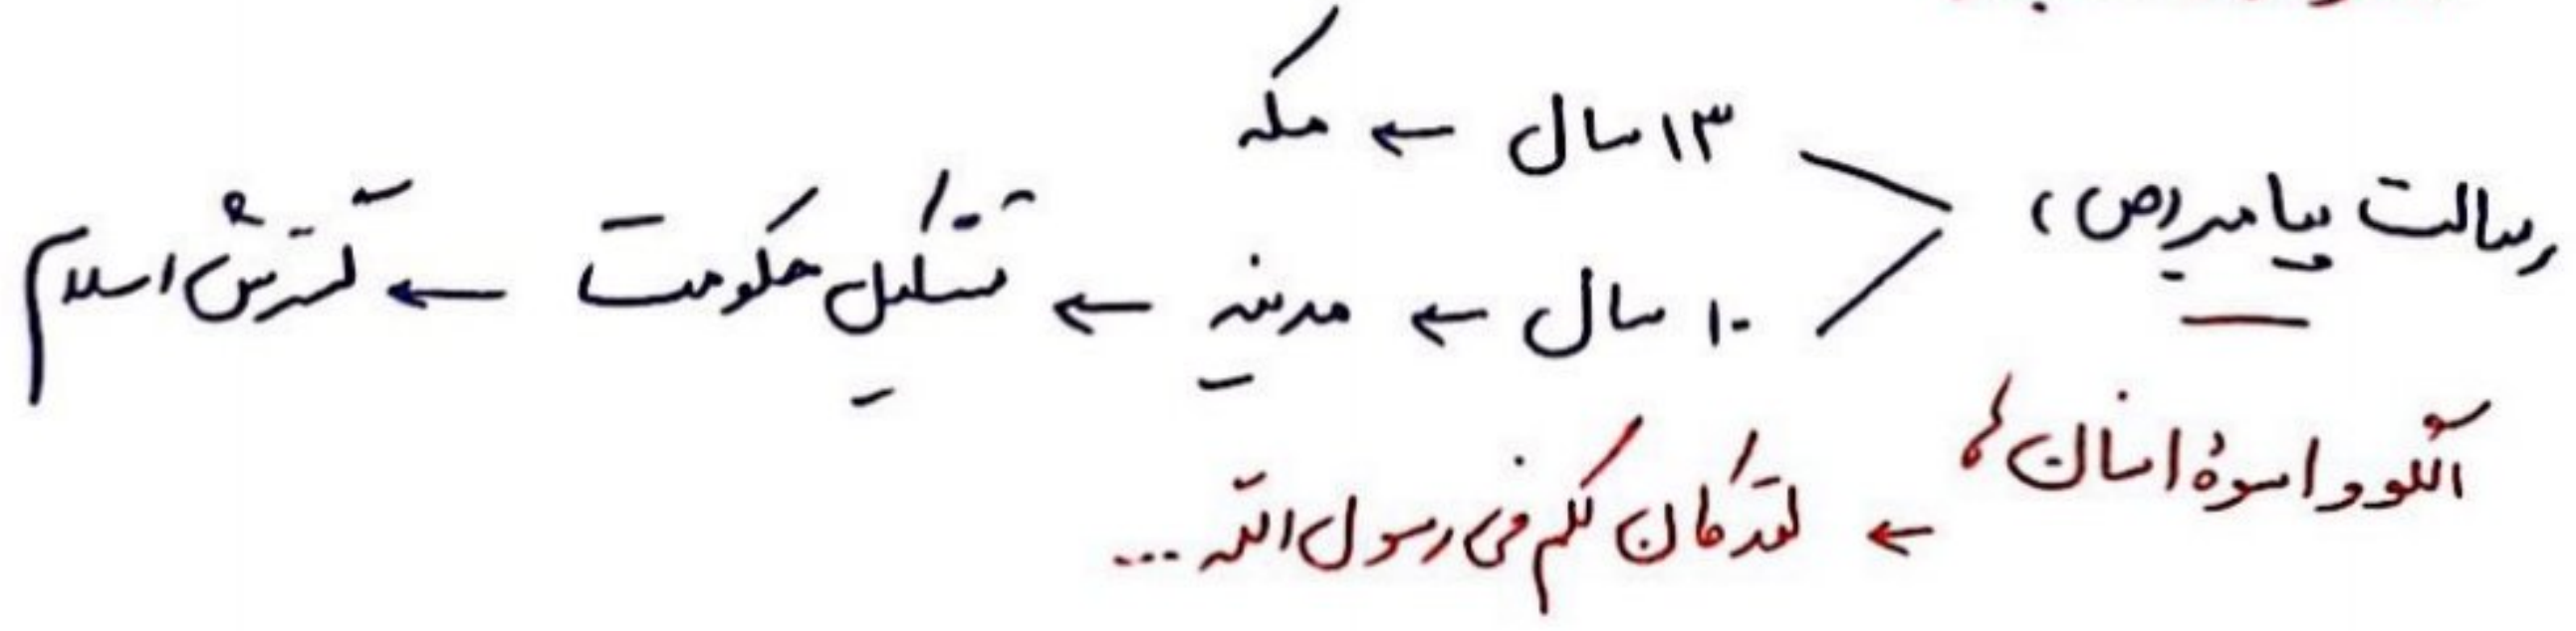 رسالت پیامبر (ص)
۱۳ سال ← مکه
۱۰ سال ← مدینه ← تشکیل حکومت ← گسترش اسلام
الگو و اسوهٔ انسان‌ها
← لقد کان لکم فی رسول الله ...